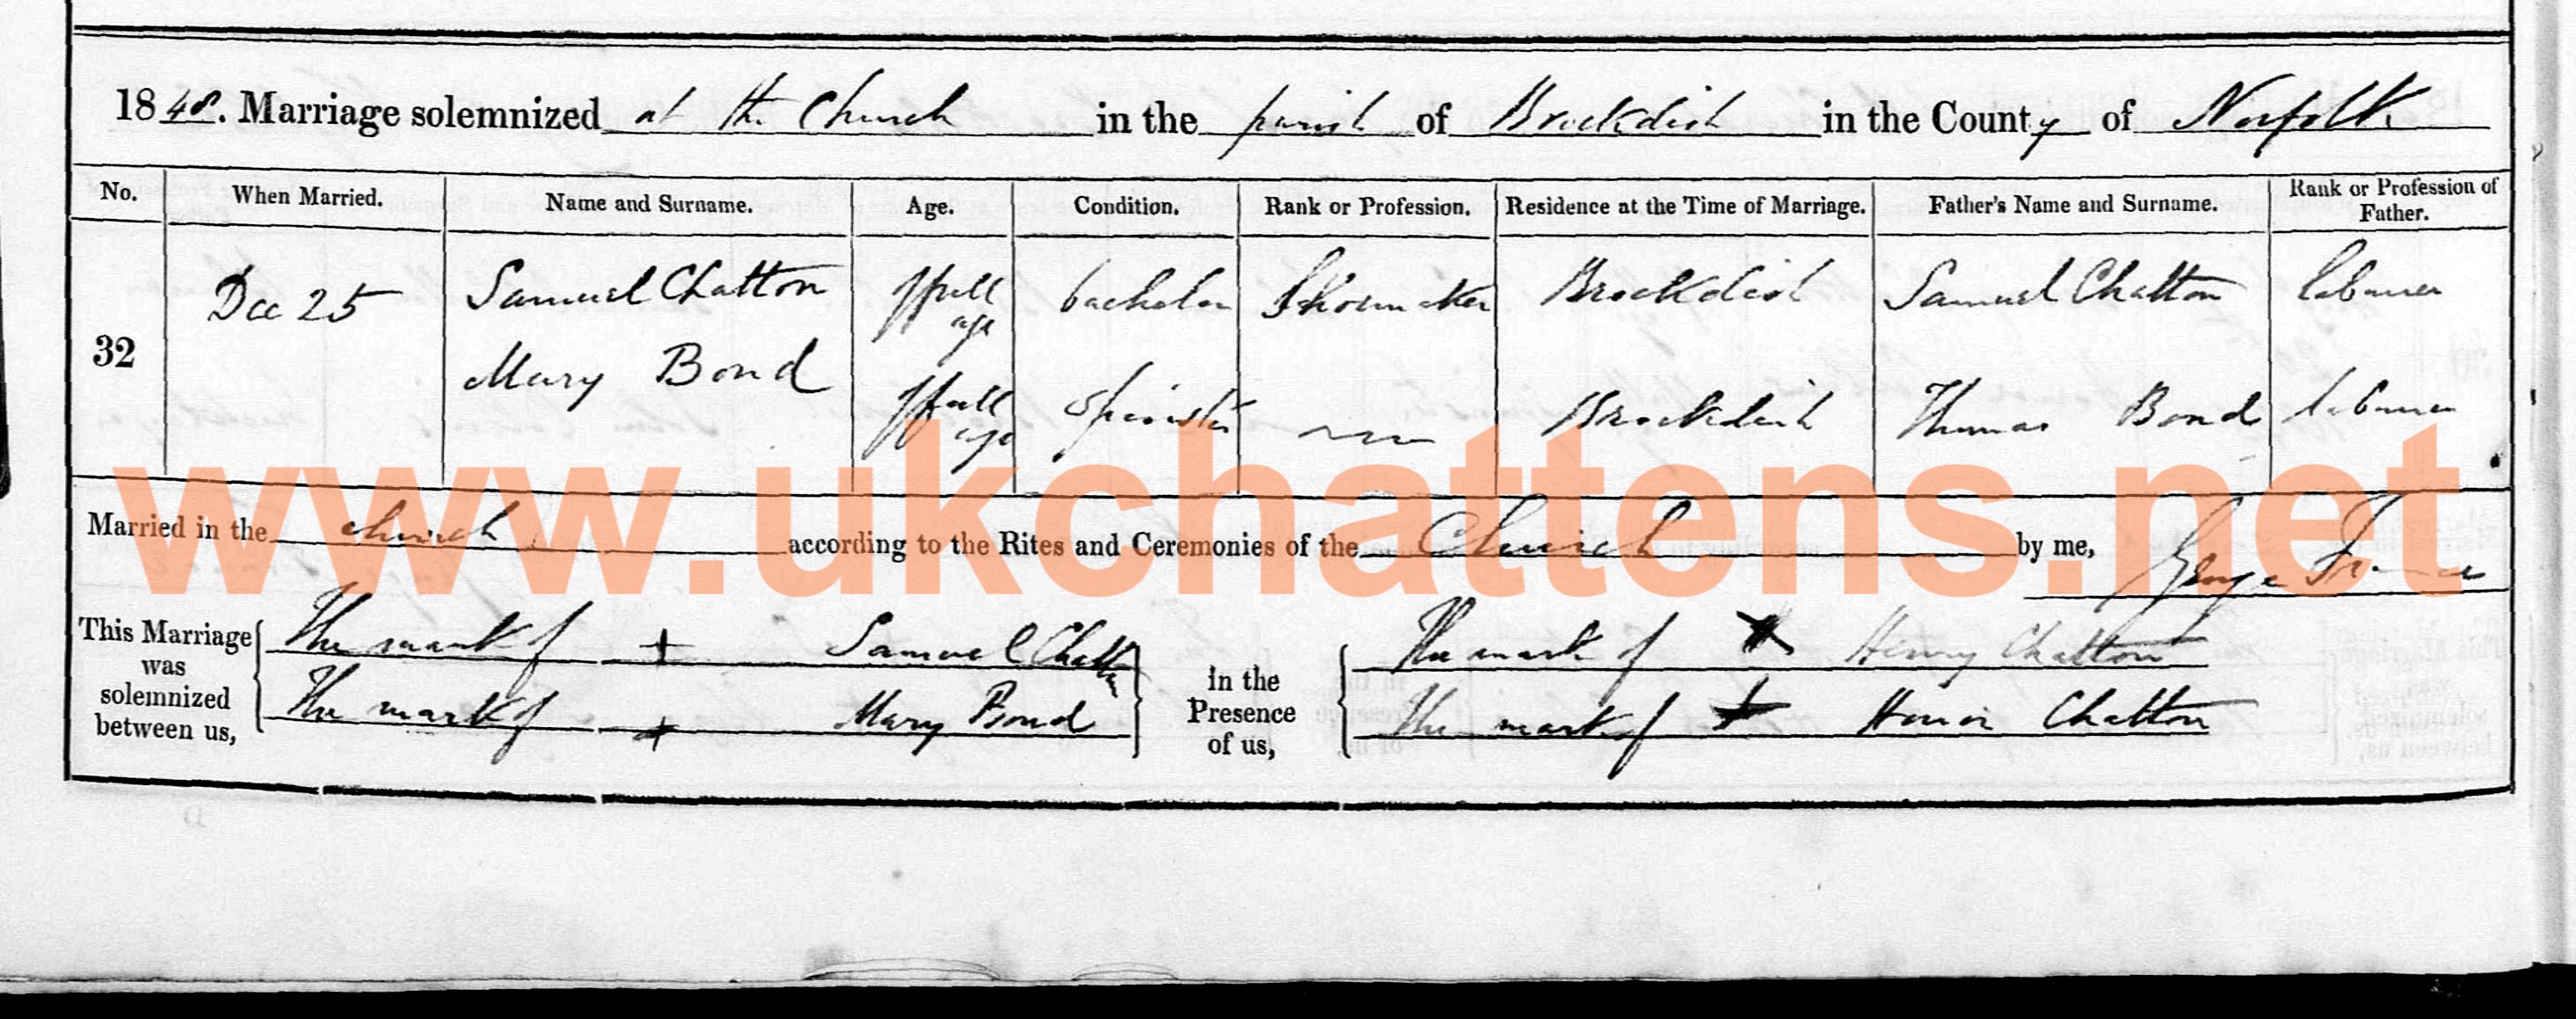 1848. Marriage solemnized at the Church in the parish of Brockdish in the County of Norfolk
No. When Married. Name and Surname. Age. Condition. Rank or Profession. Residence at the Time of Marriage. Father's Name and Surname. Rank or Profession of Father.
32 Dec 25 Samuel Chatton ffull age bachelor Shoemaker Brockdish Samuel Chatton labourer
Mary Bond ffull age spinster Brockdish Thomas Bond labourer
www.ukchattens.net
Married in the church according to the Rites and Ceremonies of the Church by me, George France
This Marriage was solemnized between us, The mark of + Samuel Chatton in the Presence of us, The mark of x Henry Chatton
The mark of + Mary Bond The mark of + Honor Chatton